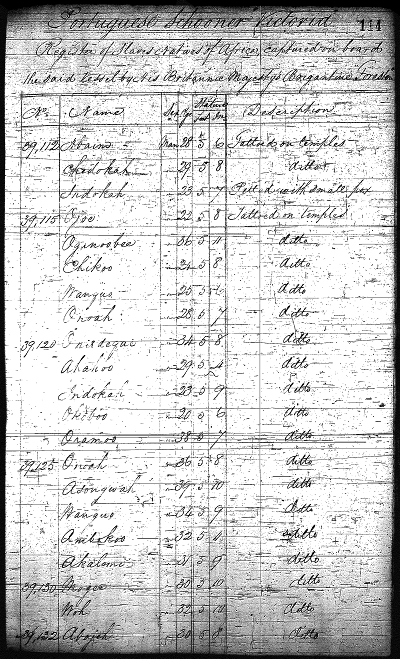 Portuguese Schooner Victoria 111
Register of Slaves Natives of Africa, captured on board
the said Vessel by His Britannic Majesty's Brigantine
No. Name Sex Age Stature Feet In. Description
39,112 Man 28 5 6 Tattood on temples
29 5 8 ditto
Indokah 23 5 7 Pitted with small pox
39,115 Ojoo 22 5 8 Tattood on temples
Oginoobee 36 5 ditto
Chikoo 5 8 ditto
Wanguo 25 5 6 ditto
Onoah 28 5 7 ditto
39,120 34 5 8 ditto
Ahahoo 29 5 4 ditto
Indokah 23 5 9 ditto
20 5 6 ditto
Oramoo 38 5 7 ditto
39,125 Onoah 36 5 8 ditto
Adongwah 39 5 10 ditto
Wanguo 34 5 9 ditto
32 5 ditto
Akalomi 5 9 ditto
39,130 30 5 10 ditto
Woh 32 5 10 ditto
39,132 30 5 8 ditto